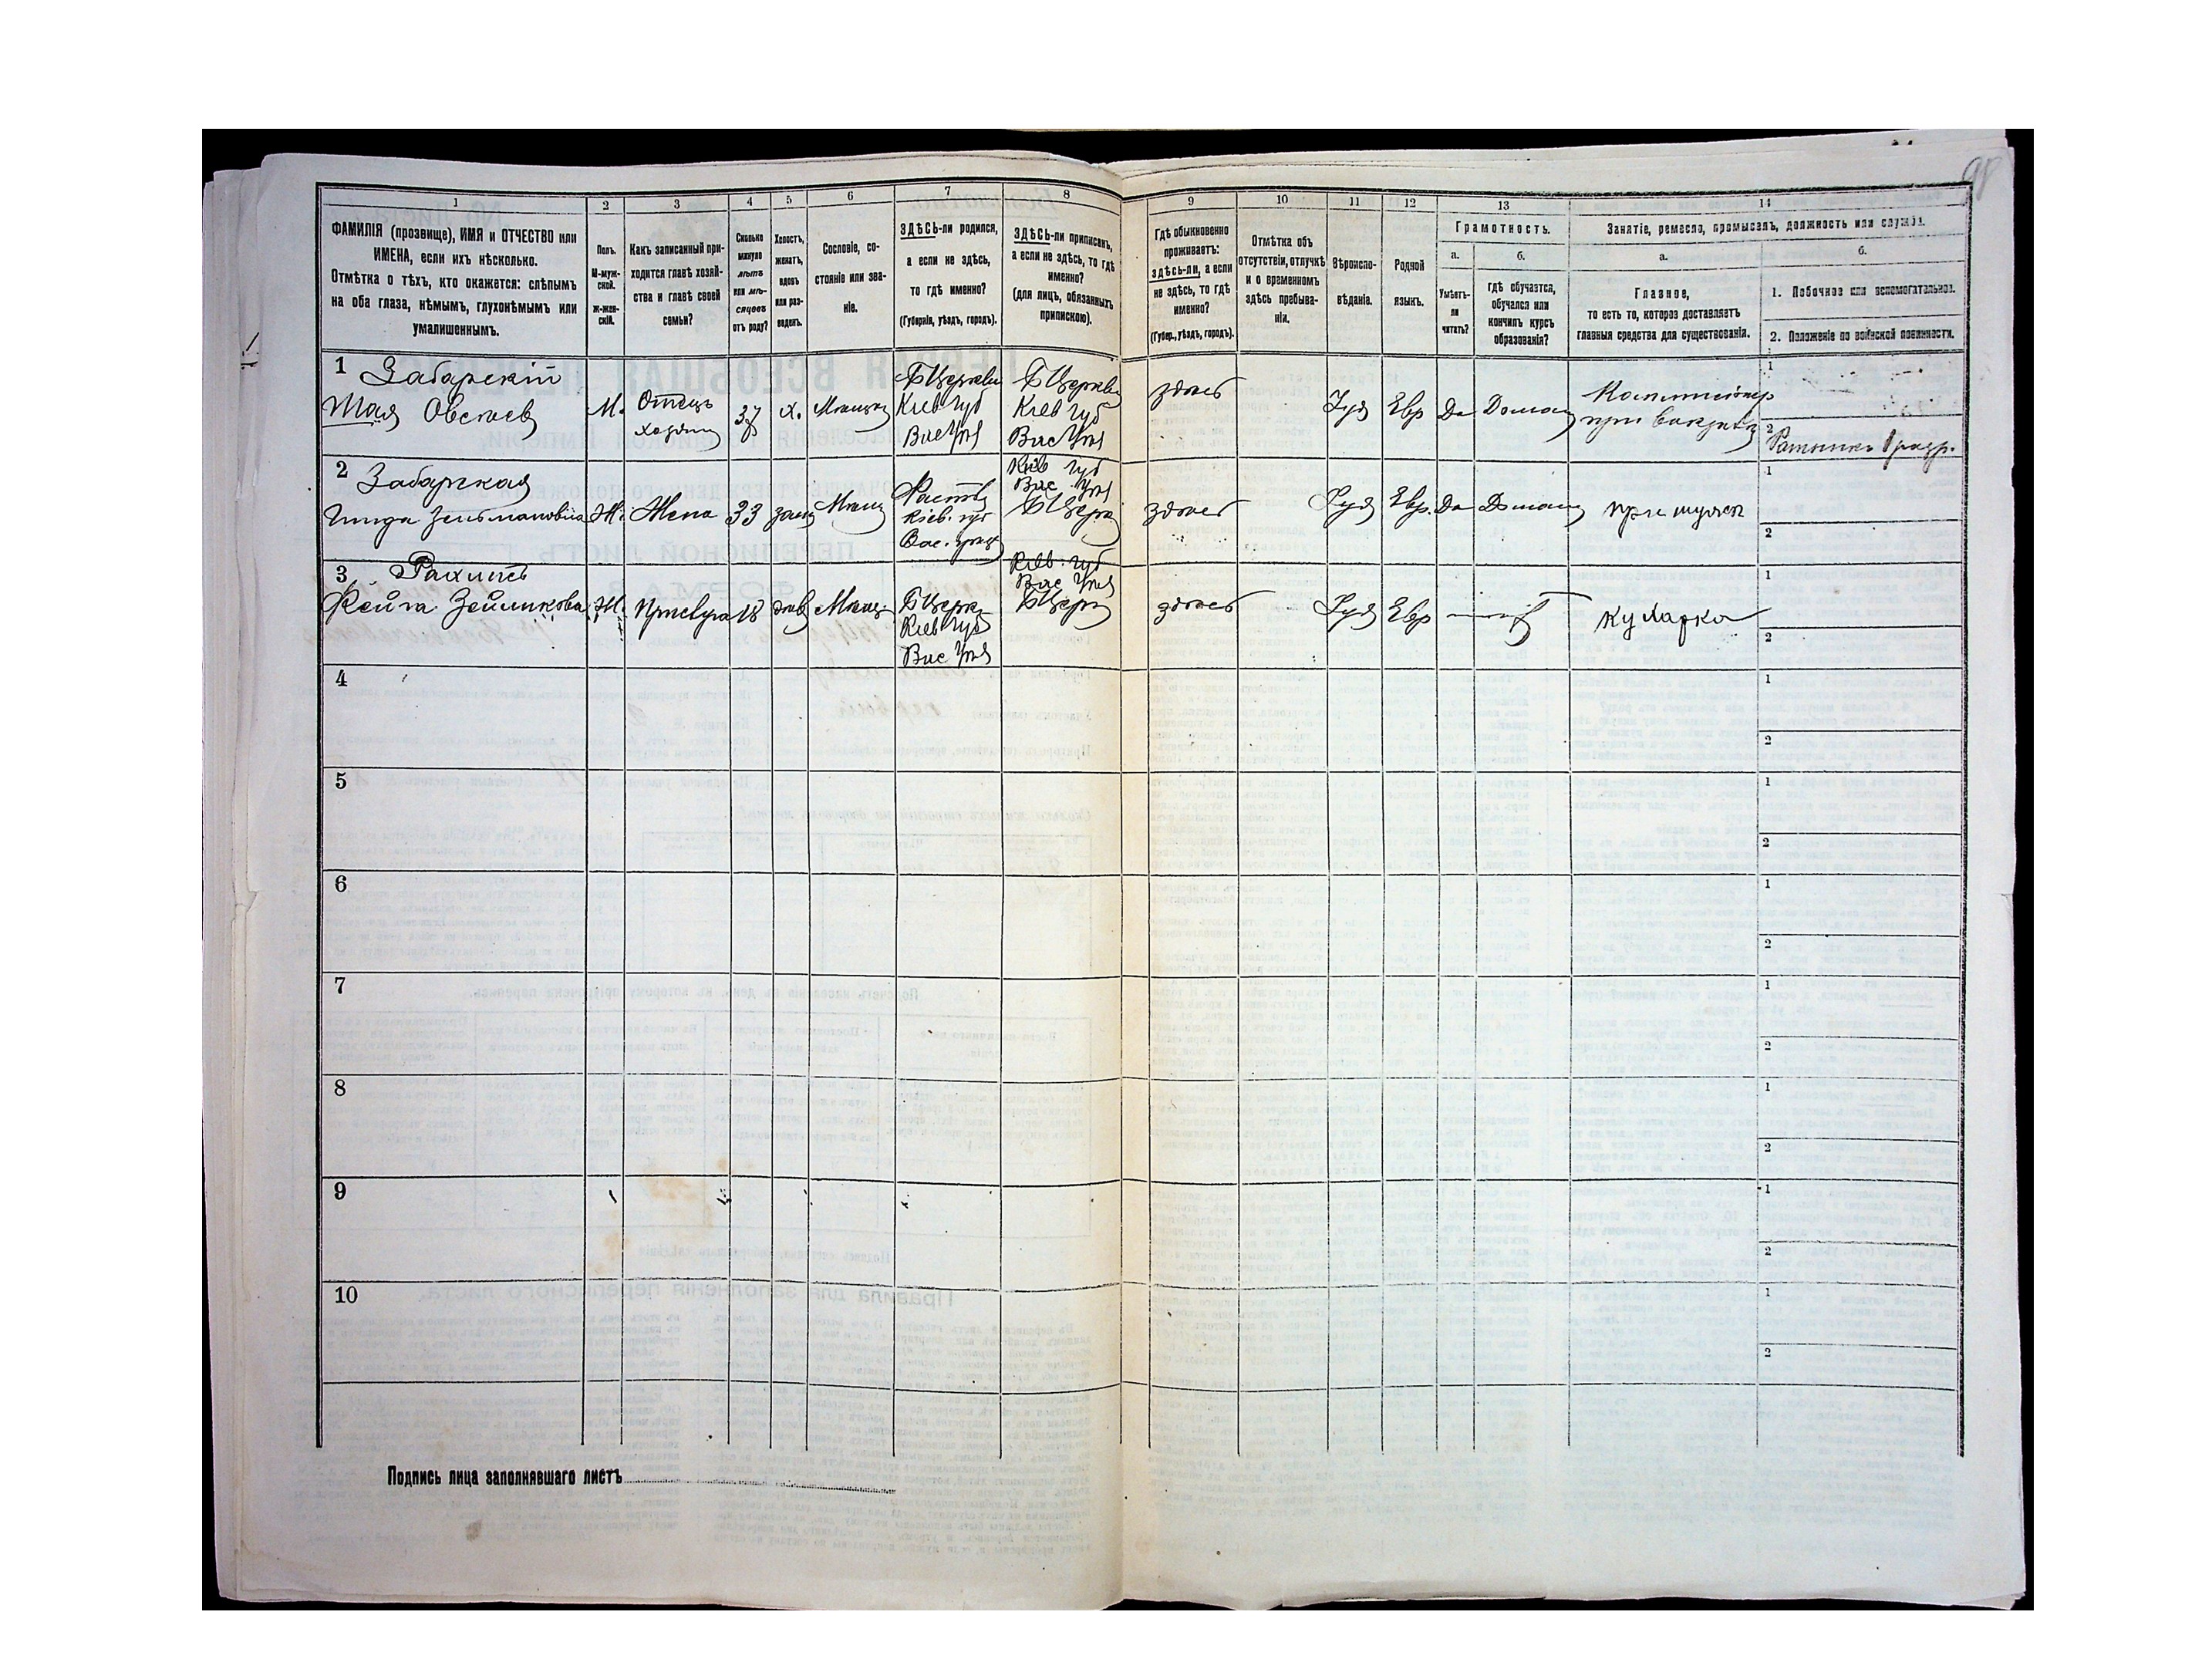 98
1 2 3 4 5 6 7 8 9 10 11 12 13 14
ФАМИЛІЯ (прозвище), ИМЯ и ОТЧЕСТВО или
ИМЕНА, если ихъ нѣсколько.
Отмѣтка о тѣхъ, кто окажется: слѣпымъ
на оба глаза, нѣмымъ, глухонѣмымъ или
умалишеннымъ.
Полъ.
М-муж-
ской.
ж-жен-
скій.
Какъ записанный при-
ходится главѣ хозяй-
ства и главѣ своей
семьи?
Сколько
минуло
лѣтъ
или мѣ-
сяцевъ
отъ роду?
Холостъ,
женатъ,
вдовъ
или раз-
веденъ.
Сословіе, со-
стояніе или зва-
ніе.
ЗДѢСЬ-ли родился,
а если не здѣсь,
то гдѣ именно?
(Губернія, уѣздъ, городъ).
ЗДѢСЬ-ли приписанъ,
а если не здѣсь, то гдѣ
именно?
(для лицъ, обязанныхъ
припискою).
Гдѣ обыкновенно
проживаетъ:
здѣсь-ли, а если
не здѣсь, то гдѣ
именно?
(Губер., уѣздъ, городъ).
Отмѣтка объ
отсутствіи, отлучкѣ
и о временномъ
здѣсь пребыва-
ніи.
Вѣроиспо-
вѣданіе.
Родной
языкъ.
Грамотность.
а.
Умѣетъ-
ли
читать?
б.
гдѣ обучается,
обучался или
кончилъ курсъ
образованія?
Занятіе, ремесло, промыселъ, должность или служба.
а.
Главное,
то есть то, которое доставляетъ
главныя средства для существованія.
б.
1. Побочное или вспомогательное.
2. Положеніе по воинской повинности.
1 Забарскій
Шая Овсеев
М.
Отецъ
хозяин
37
х.
Мещан
БЦеркви
Кіев Губ
Вас Уѣз
БЦеркви
Кіев Губ
Вас Уѣз
здѣсь
Іуд
Евр
Да
Дома
при
1
2 Ратникъ 1 разр.
2 Забарская
Ж.
Жена
33
зам
Мещ
Кіев. губ
Вас. уѣзд
Кіев Губ
Вас Уѣз
БЦерк
здѣсь
Іуд
Евр.
Да
Дома
при мужѣ
1
2
3
Ж.
Прислуга
18
дѣв
Мещ
БЦерк
Кіев Губ
Вас Уѣз
Кіев. Губ
Вас Уѣз
БЦерк
здѣсь
Іуд
Евр
кухарка
1
2
4
1
2
5
1
2
6
1
2
7
1
2
8
1
2
9
1
2
10
1
2
Подпись лица заполнявшаго листъ